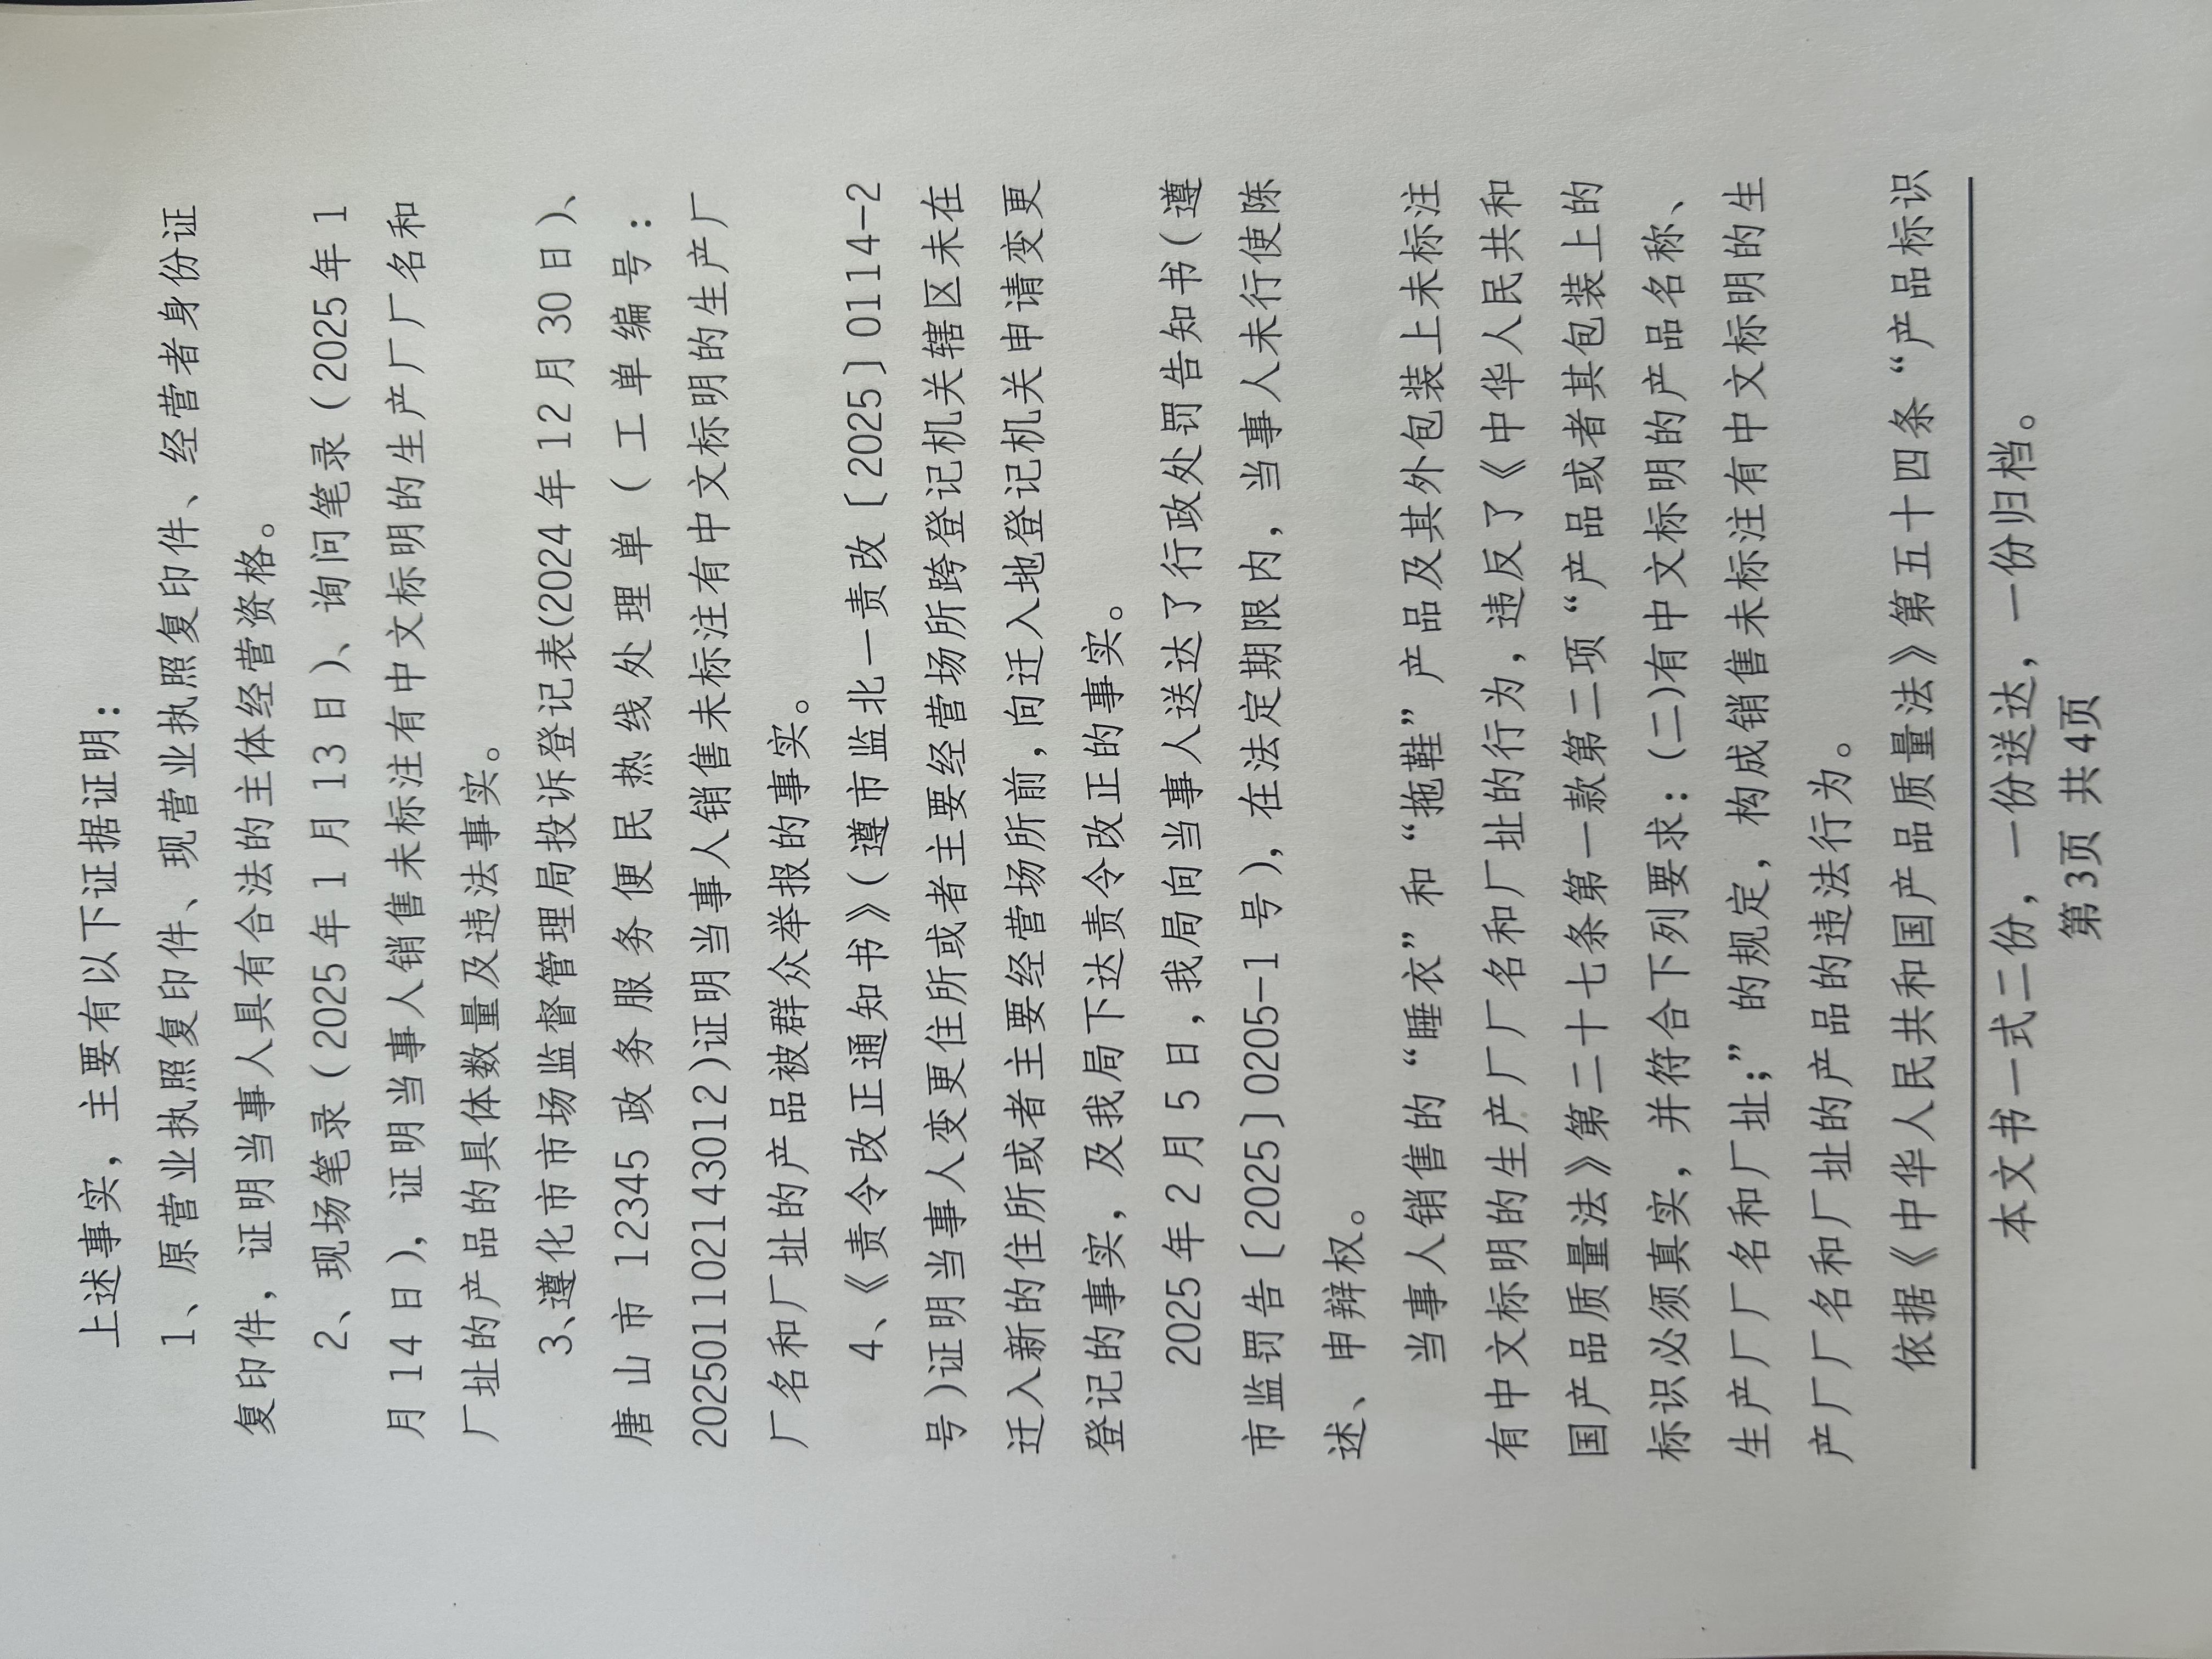 上述事实，主要有以下证据证明：
1、原营业执照复印件、现营业执照复印件、经营者身份证
复印件，证明当事人具有合法的主体经营资格。
2、现场笔录（2025年1月13日）、询问笔录（2025年1
月14日），证明当事人销售未标注有中文标明的生产厂厂名和
厂址的产品的具体数量及违法事实。
3、遵化市市场监督管理局投诉登记表(2024年12月30日）、
唐山市12345政务服务便民热线处理单（工单编号：
20250110214​3012)证明当事人销售未标注有中文标明的生产厂
厂名和厂址的产品被群众举报的事实。
4、《责令改正通知书》（遵市监北一责改〔2025〕0114-2
号)证明当事人变更住所或者主要经营场所跨登记机关辖区未在
迁入新的住所或者主要经营场所前，向迁入地登记机关申请变更
登记的事实，及我局下达责令改正的事实。
2025年2月5日，我局向当事人送达了行政处罚告知书（遵
市监罚告〔2025〕0205-1号），在法定期限内，当事人未行使陈
述、申辩权。
当事人销售的“睡衣”和“拖鞋”产品及其外包装上未标注
有中文标明的生产厂厂名和厂址的行为，违反了《中华人民共和
国产品质量法》第二十七条第一款第二项“产品或者其包装上的
标识必须真实，并符合下列要求：(二)有中文标明的产品名称、
生产厂厂名和厂址；”的规定，构成销售未标注有中文标明的生
产厂厂名和厂址的产品的违法行为。
依据《中华人民共和国产品质量法》第五十四条“产品标识
本文书一式二份，一份送达，一份归档。
第3页 共4页